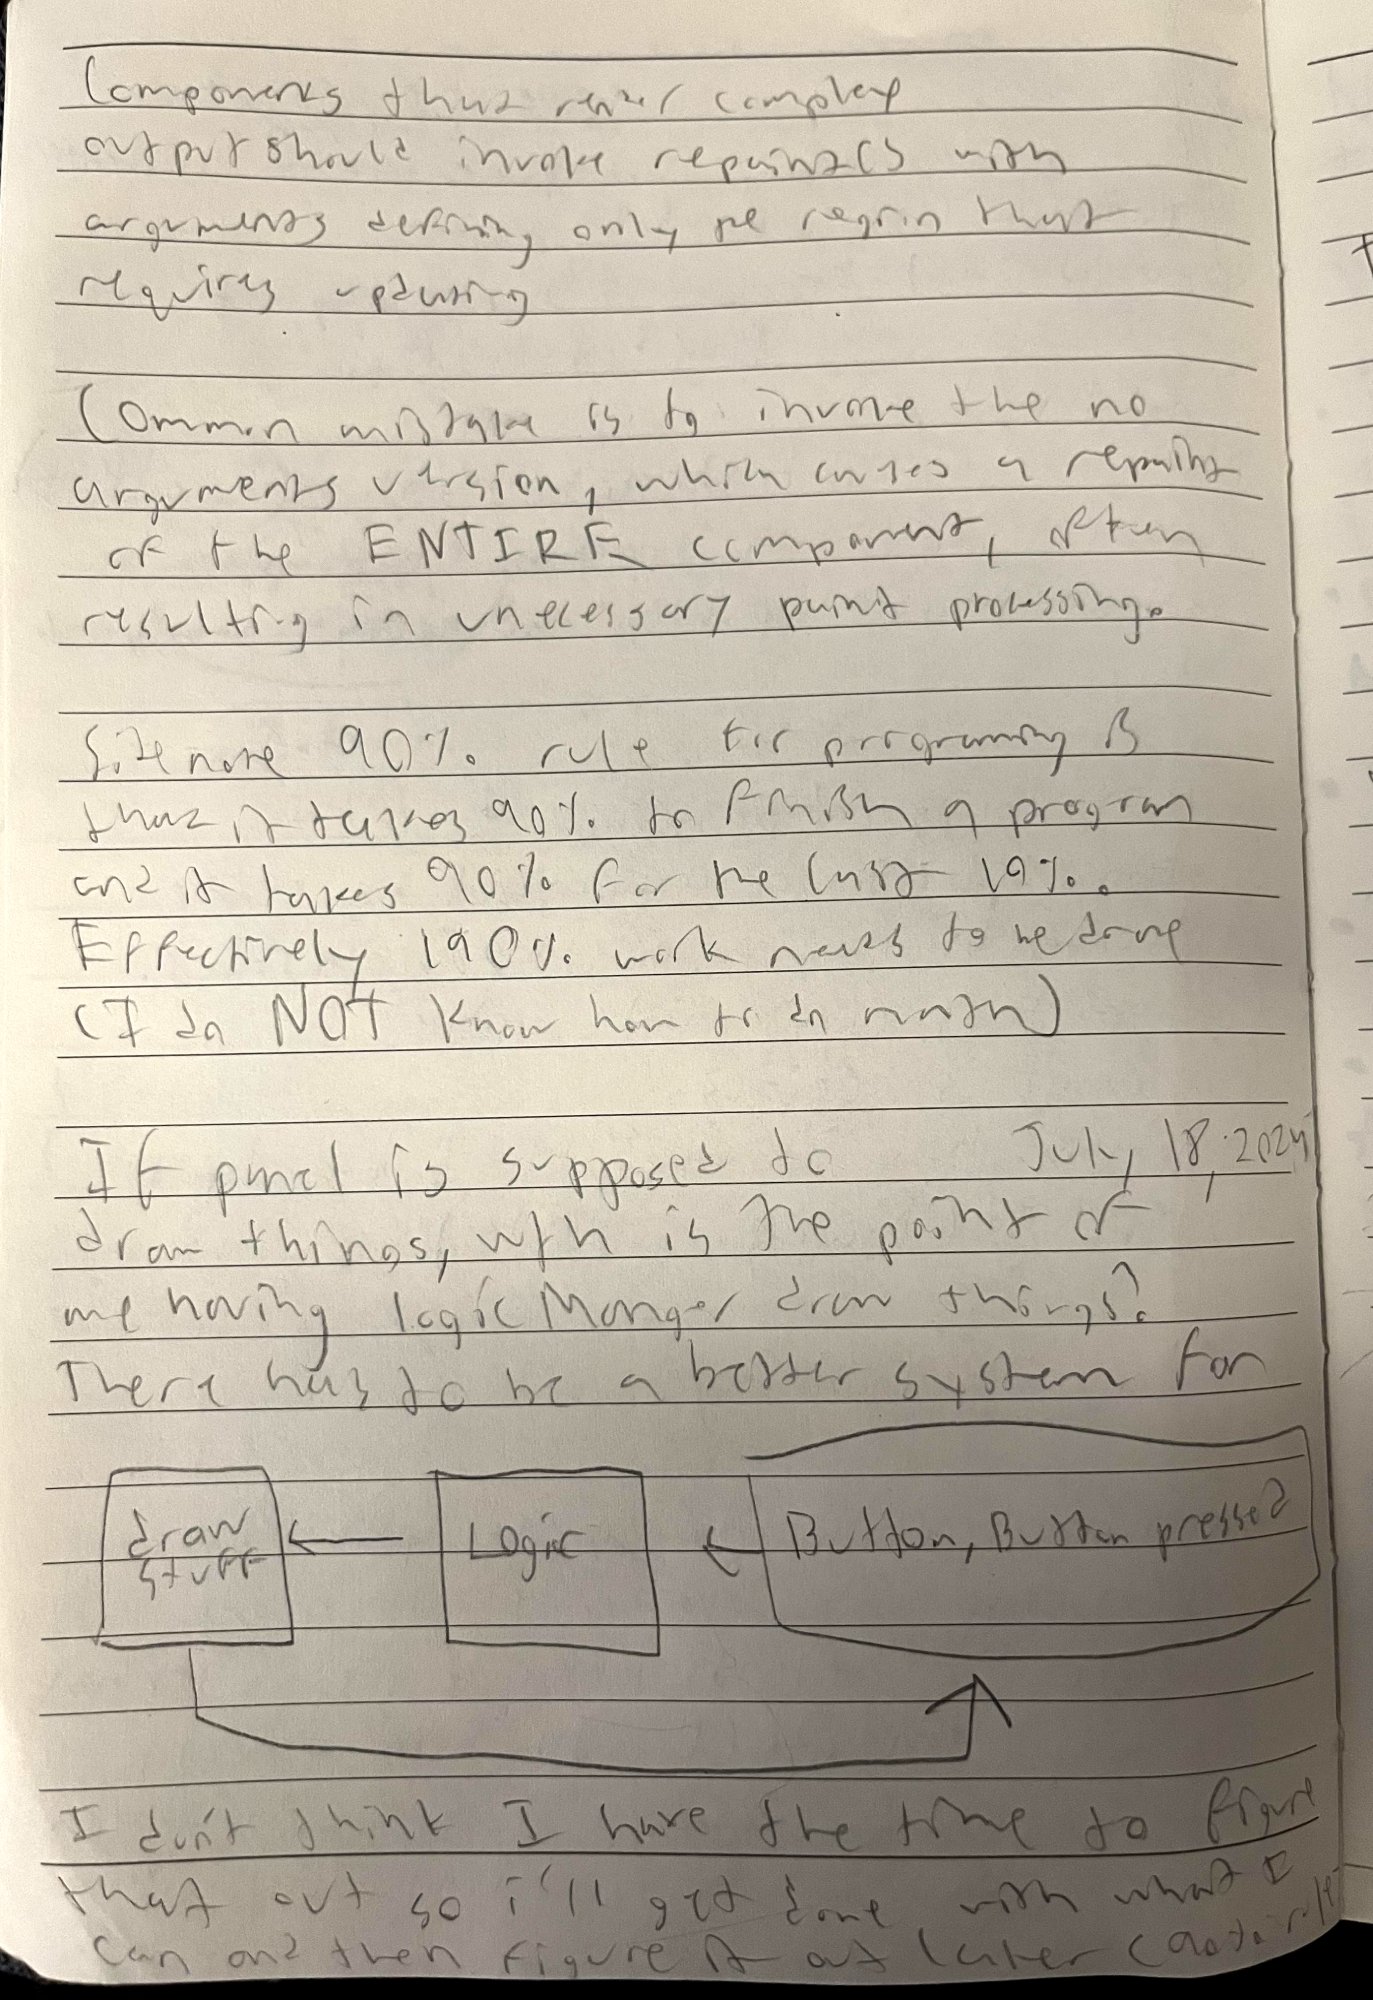 Components that render complex
output should invoke repaint() with
arguments defining only the region that
requires updating
Common mistake is to invoke the no
arguments version, which causes a repaint
of the ENTIRE component, often
resulting in unecessary paint processing.
Side note 90% rule for programming is
that it takes 90% to finish a program
and it takes 90% for the last 10%.
Effectively 190% work needs to be done
(I do NOT know how to do math)
If panel is supposed to
July, 18, 2024
draw things, wth is the point of
me having logic Manger draw things?
There has to be a better system for
draw
stuff
Logic
Button, Button pressed
I don't think I have the time to figure
that out so i'll get done with what I
can and then figure it out later (90% rule